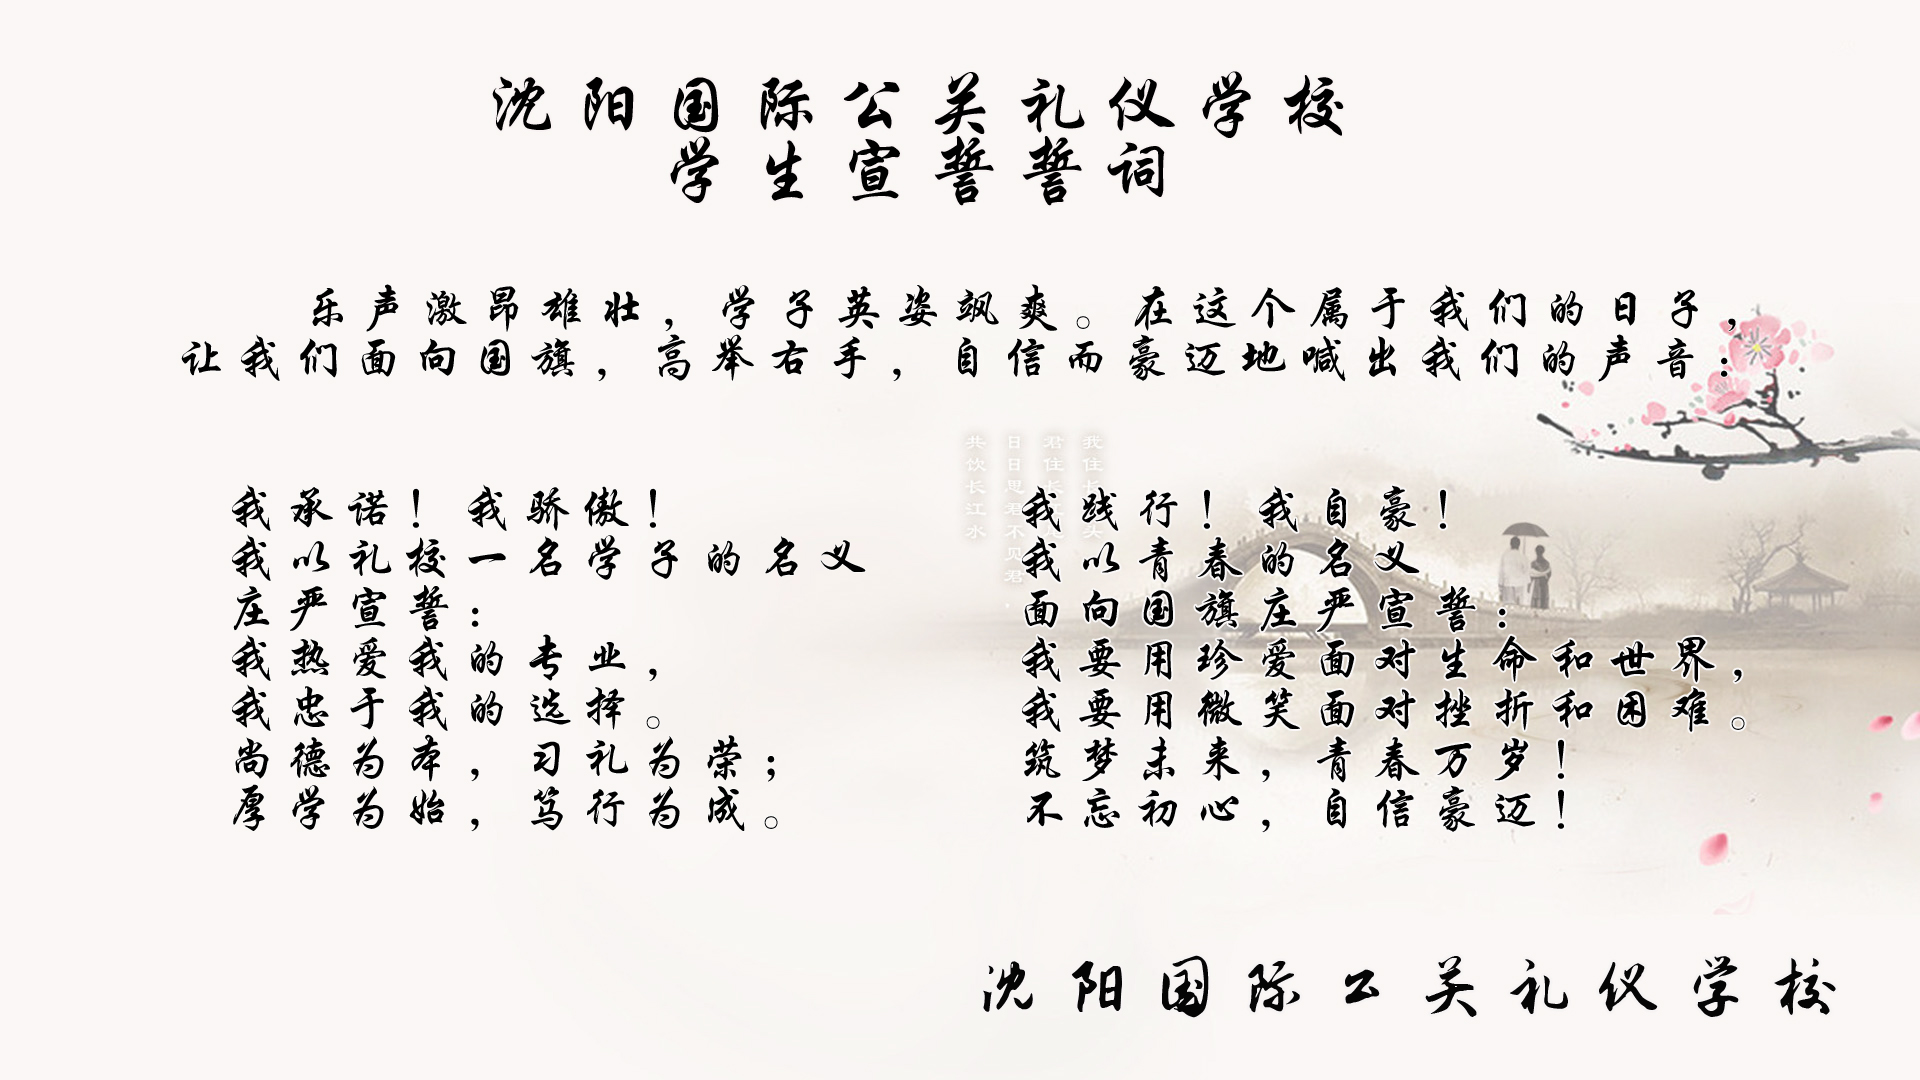 沈阳国际公关礼仪学校
学生宣誓誓词
乐声激昂雄壮，学子英姿飒爽。在这个属于我们的日子，
让我们面向国旗，高举右手，自信而豪迈地喊出我们的声音：
我承诺！我骄傲！
我以礼校一名学子的名义
庄严宣誓：
我热爱我的专业，
我忠于我的选择。
尚德为本，习礼为荣；
厚学为始，笃行为成。
我践行！我自豪！
我以青春的名义
面向国旗庄严宣誓：
我要用珍爱面对生命和世界，
我要用微笑面对挫折和困难。
筑梦未来，青春万岁！
不忘初心，自信豪迈！
我住长
君住长
日日思君不见君
共饮长江水
沈阳国际公关礼仪学校